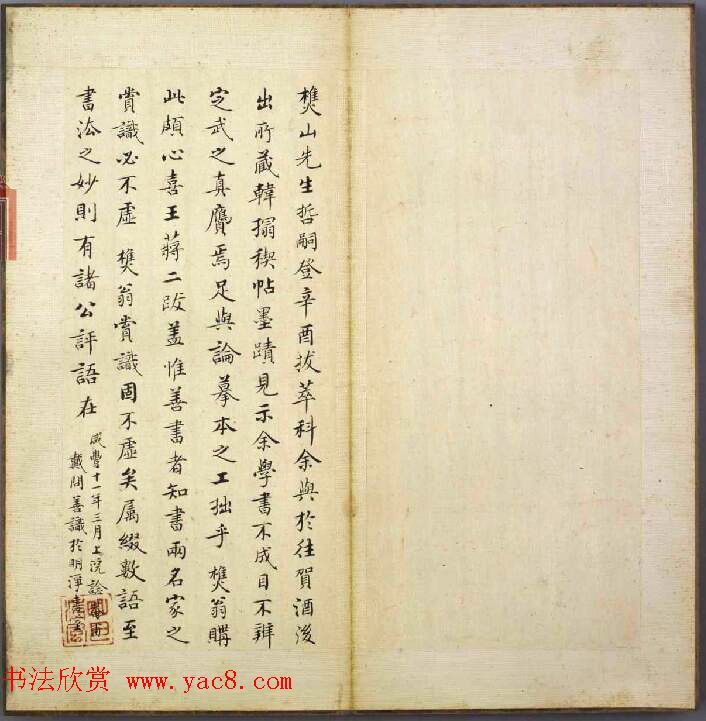 樵山先生哲嗣登辛酉拔萃科余與於往賀酒後
出所藏韓搨稧帖墨蹟見示余學書不成目不辨
定武之真贗焉足與論摹本之工拙乎樵翁購
此頗心喜王蔣二跋蓋惟善書者知書兩名家之
賞識必不虛 樵翁賞識固不虛矣屬綴數語至
書法之妙則有諸公評語在
咸豐十一年三月上浣諗
戴開善識於明淨
书法欣赏 www.yac8.com